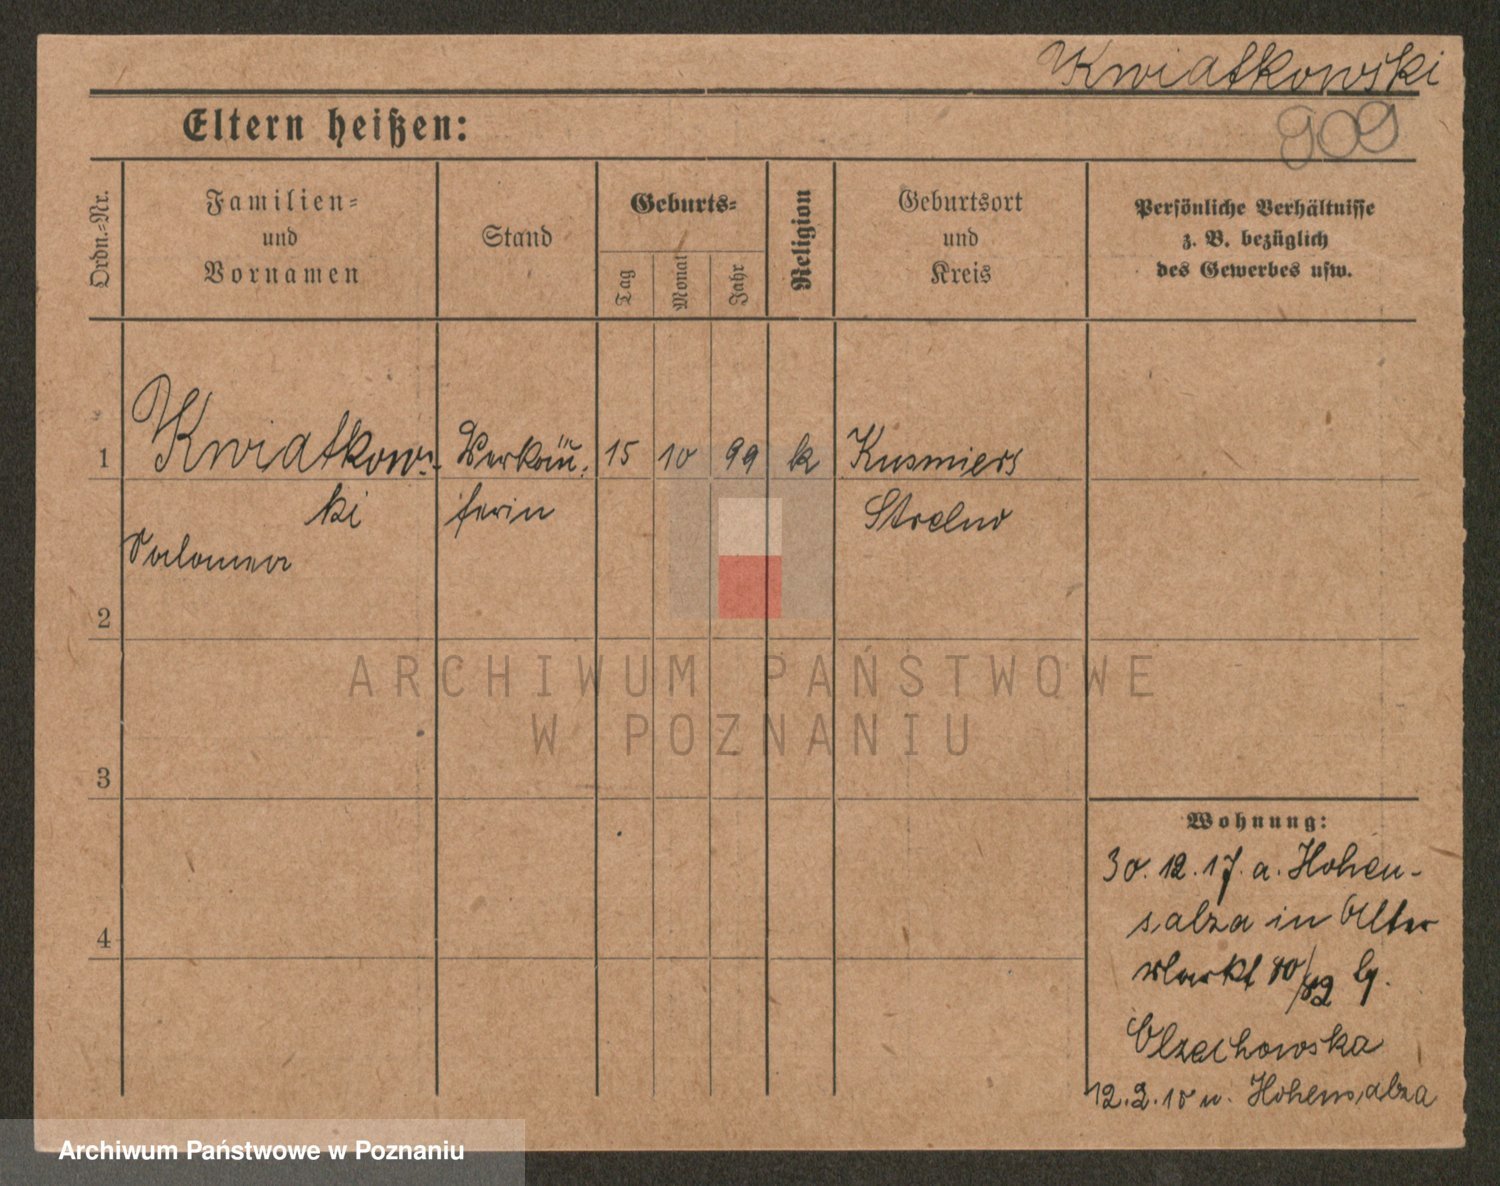 Kwiatkowski
909
Eltern heißen:
Ordn.-Nr.
Familien-
und
Vornamen
Stand
Geburts-
Tag
Monat
Jahr
Religion
Geburtsort
und
Kreis
Persönliche Verhältnisse
z. B. bezüglich
des Gewerbes usw.
1
Kwiatkow-
ski
Salomea
Verkäu-
ferin
15
10
99
k
Kusmierz
Strelno
2
3
4
Wohnung:
30. 12. 17. a. Hohen-
salza in Alter
Markt 80/82 b.
Olzechowska
12.2.18 n. Hohensalza
ARCHIWUM PAŃSTWOWE
W POZNANIU
Archiwum Państwowe w Poznaniu